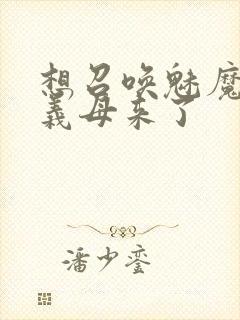 想召唤魅魔
義母来了
潘少銮